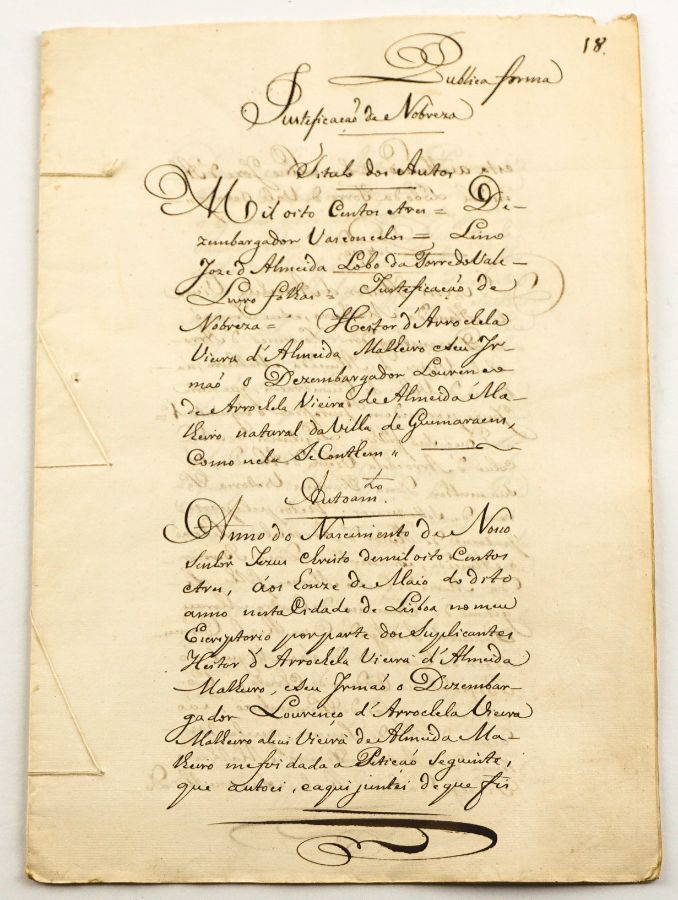 18.
Publica forma
Justificação de Nobreza
Titulo dos Autos
Mil oito Centos etres = De-
zembargador Vasconcelos = Lino
Joze d'Almeida Lobo da Torre do Vale -
Livro folhas = Justeficação de
Nobreza = Heitor d'Arrochela
Vieira d'Almeida Malheiro eSeu Ir-
maõ o Dezembargador Lourenco
de Arrochela Vieira de Almeida Ma-
lheiro, natural da Villa de Guimaraens,
Como nela Se Conthem "
Autoam.to
Anno do Nascimento de Noso
Senhor Jezus Christo demil oito Centos
etres, áos Eonze de Maio do dito
anno nesta Cidade de Lisboa no meu
Escriptorio por parte dos Suplicantes
Heitor d'Arrochela Vieira d'Almeida
Malheiro, eSeu Irmaõ o Dezembar-
gador Lourenço d'Arrochela Vieira
Malheiro alias Vieira de Almeida Ma-
lheiro me foi dada a Petição Seguinte,
que autoei, eaqui juntei de que fis